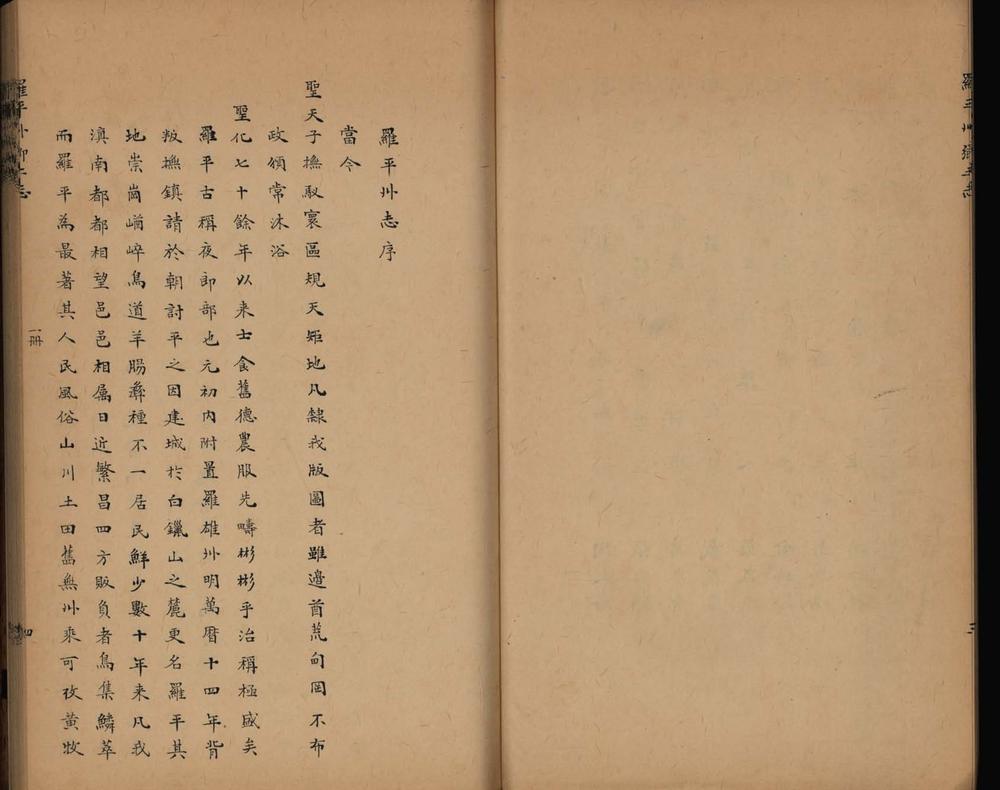 羅平州鄉土志
三
羅平州志序
當今
聖天子撫馭寰區規天矩地凡隸我版圖者雖邊酋荒甸罔不布
政頒常沐浴
聖化七十餘年以来士食舊德農服先疇彬彬乎治稱極盛矣
羅平古稱夜郎部也元初内附置羅雄州明萬曆十四年背
叛撫鎮請於朝討平之因建城於白鑞山之麓更名羅平其
地崇崗崷崪鳥道羊腸彝種不一居民鮮少數十年来凡我
滇南都都相望邑邑相属日近繁昌四方販負者鳥集鱗萃
而羅平為最著其人民風俗山川土田舊無州乘可攷黄牧
羅平州鄉土志
一册
四